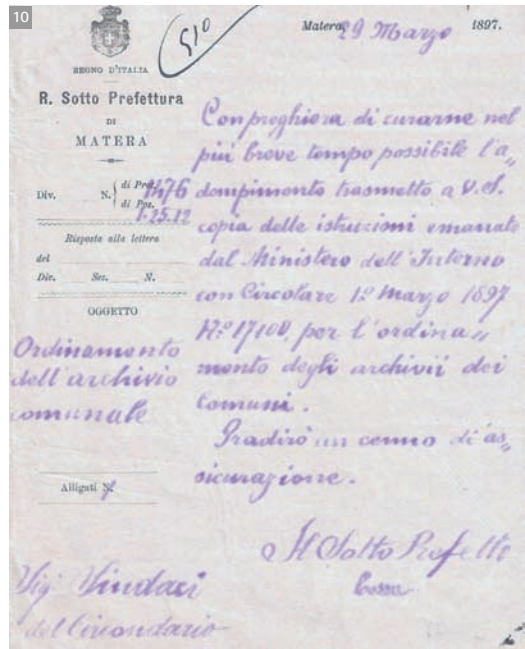 10
510
REGNO D'ITALIA
R. Sotto Prefettura
DI
MATERA
Div. N. di Prot. 1476
di Pos. 1.25.12
Risposta alla lettera
del
Div. Sez. N.
OGGETTO
Ordinamento
dell'archivio
comunale
Alligati N.
Sig. Sindaci
del Circondario
Matera, 29 Marzo 1897.
Con preghiera di curarne nel
più breve tempo possibile l'a„
dempimento trasmetto a V. S.
copia delle istruzioni emanate
dal Ministero dell'Interno
con Circolare 1º Marzo 1897
Nº 17100, per l'ordina„
mento degli archivii dei
comuni.
Gradirò un cenno di as„
sicurazione.
Il Sotto Prefetto